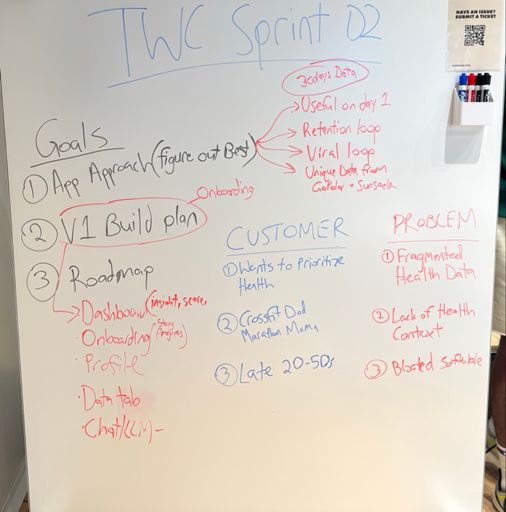 TWC Sprint D2
HAVE AN ISSUE?
SUBMIT A TICKET
30 days Data
Useful on day 1
Retention loop
Viral loop
Unique Data from
GoPolar + Sunsack
Goals
① App Approach (figure out Best)
Onboarding
② V1 Build plan
③ Roadmap
Dashboard (insight, score,
· Onboarding (Story Progress)
· Profile
· Data tab
· Chat/LLM-
CUSTOMER
① Wants to Prioritize
Health
② Crossfit Dad
Marathon Mama
③ Late 20-50s
PROBLEM
① Fragmented
Health Data
② Lack of Health
Context
③ Bloated Software